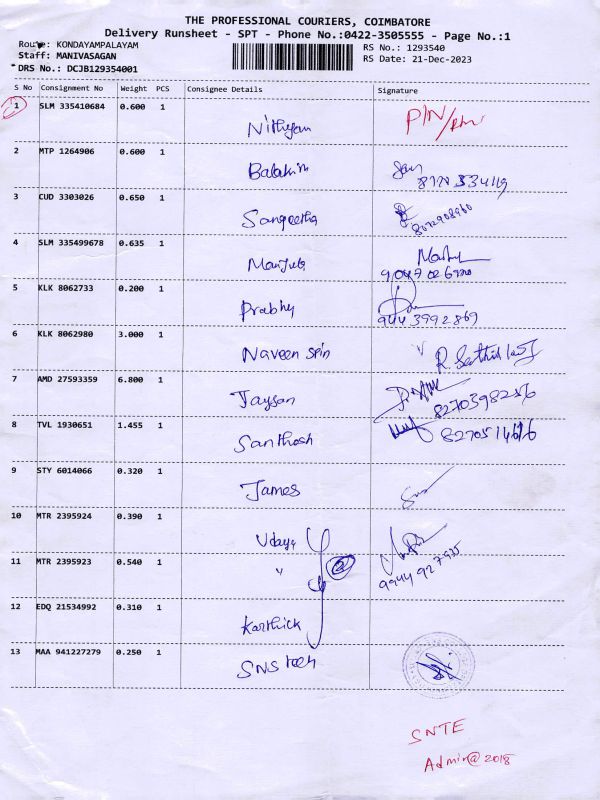 THE PROFESSIONAL COURIERS, COIMBATORE
Delivery Runsheet - SPT - Phone No.:0422-3505555 - Page No.:1
Route: KONDAYAMPALAYAM RS No.: 1293540
Staff: MANIVASAGAN RS Date: 21-Dec-2023
DRS No.: DCJB129354001
S No Consignment No Weight PCS Consignee Details Signature
1 SLM 335410684 0.600 1
2 MTP 1264906 0.600 1
3 CUD 3303026 0.650 1
Sangeetha 8072908960
4 SLM 335499678 0.635 1
Manjula
5 KLK 8062733 0.200 1
Prabhu
9443992869
6 KLK 8062980 3.000 1
Naveen Spin
7 AMD 27593359 6.800 1
Jayson 8270398256
8 TVL 1930651 1.455 1
Santhosh
9 STY 6014066 0.320 1
James
10 MTR 2395924 0.390 1
Udaya
11 MTR 2395923 0.540 1
" 2
9944927925
12 EDQ 21534992 0.310 1
Karthick
13 MAA 941227279 0.250 1
SNS tech
SNTE
Admin@2018